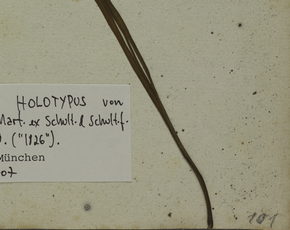 HOLOTYPUS von
Mart. ex Schult. & Schult.f.
). ("1826").
München
07
101